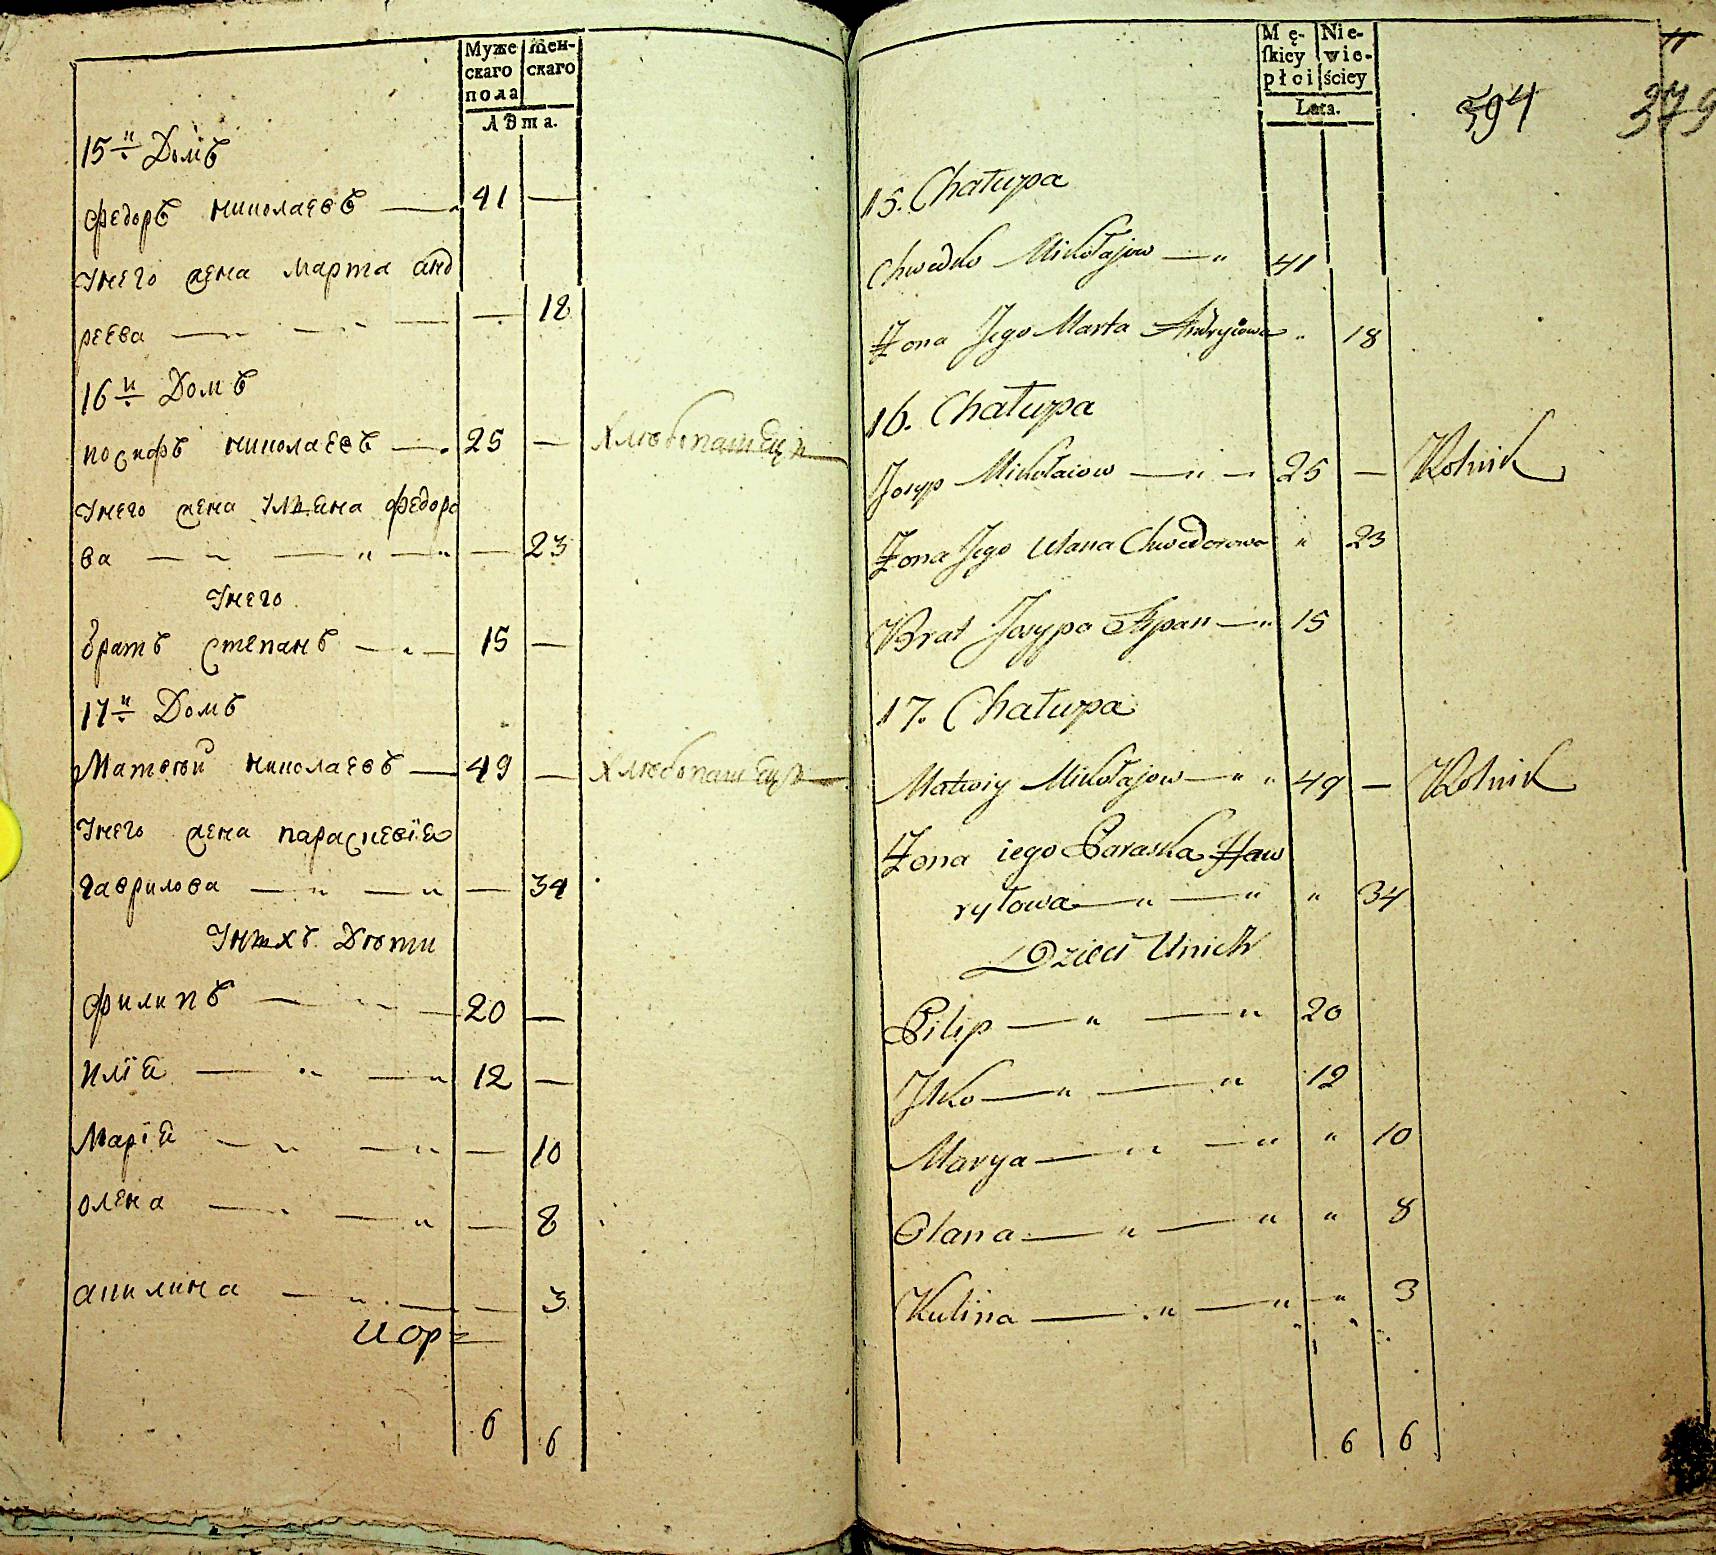 Муже
скаго
пола
жен-
скаго
Лѣта.
15й Домъ
Федоръ николаевъ — 41 —
Унего жена Марта анд
реева — — 18
16й Домъ
иосифъ николаевъ — 25 — Хлѣбопашецъ
Унего жена Улѣяна Федоро
ва — — 23
Унего
братъ степанъ — 15 —
17й Домъ
Матвѣй николаевъ — 49 — Хлѣбопашецъ
Унего жена параскевіѧ
гаврилова — — 34
Унихъ Дѣти
филипъ — 20 —
иліѧ — 12 —
Маріѧ — — 10
олена — — 8
акилина — — 3
6 6
Mę-
ſkiey
płci
Nie-
wie-
ściey
Lata.
594
379
15. Chałupa
Chwedko Mikołajow — „ 41
Żona Jego Marta Andryiowa „ 18
16. Chałupa
Josyp Mikołaiow — „ — 25 — Rolnik
Żona Jego Ulana Chwedorowa „ 23
Brat Josypa Stepan — „ 15
17. Chałupa
Matwiy Mikołajow — „ „ 49 — Rolnik
Żona iego Paraska Haw
ryłowa — „ — „ „ 34
Dzieci Unich
Pilip — „ — „ 20
Ilko — „ — „ 12
Marya — „ — „ „ 10
Olana — „ — „ „ 8
Kulina — „ — „ „ 3
6 6